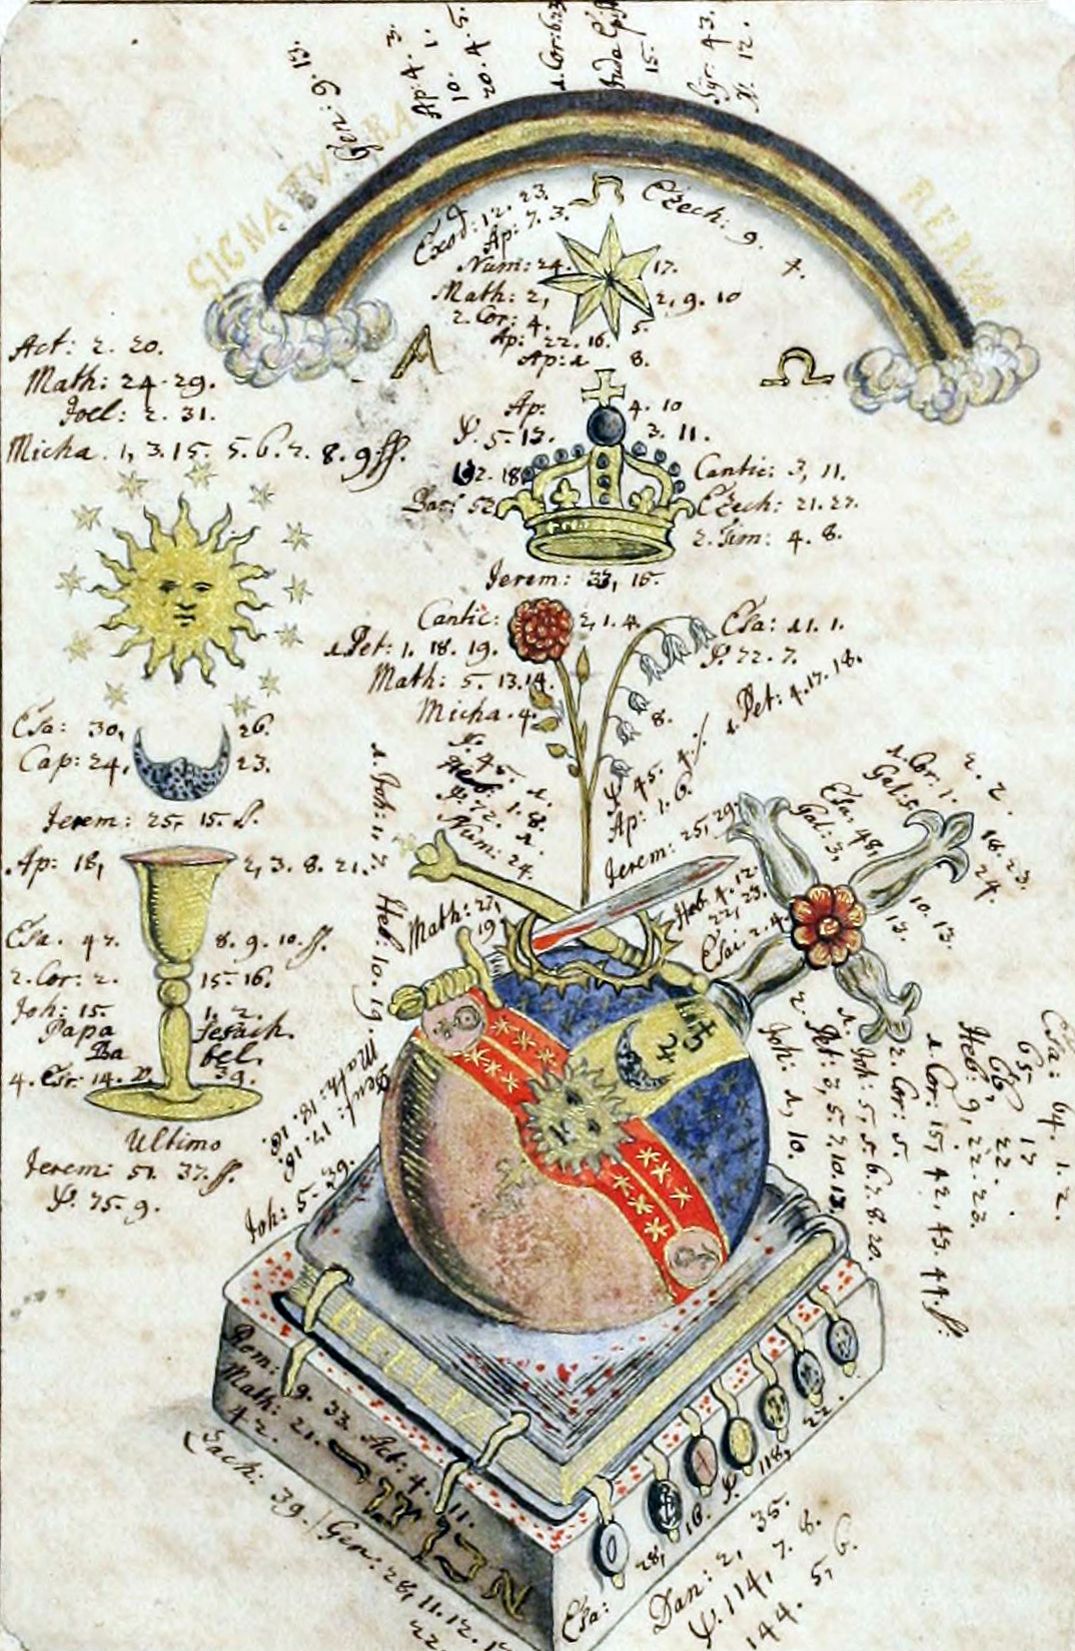 Gen: 9. 13.
Ap: 4. 3.
10. 1.
20. 4. 5.
1. Cor: 6.
Juda Ep:
15.
Syr: 43.
V. 12.
SIGNATVRA RERVM
Exod: 12. 23.
Ap: 7. 3.
Ezech: 9. 4.
Num: 24. 17.
Math: 2, 2, 9. 10
2. Cor: 4. 5.
Ap: 22. 16.
Ap: 1 8.
A Ω
Act: 2. 20.
Math: 24. 29.
Joel: 2. 31.
Micha. 1, 3. 15. 5. 6. 7. 8. 9 ff.
Ap: 4. 10
Ψ. 5. 13. 3. 11.
Cantic: 3, 11.
Ezech: 21. 27.
2. Tim: 4. 8.
Jerem: 33, 15.
Cantic: 2, 1. 4.
1. Pet: 1. 18. 19.
Math: 5. 13. 14.
Micha. 4. 8.
Esa: 11. 1.
Ψ. 72. 7.
1. Pet: 4. 17. 18.
Ψ. 45. 4.
Ap: 1. 6.
Jerem: 25, 29.
Ψ. 45. 1.
Ψ. 72. 1. 8.
Num: 24.
Esa: 30, 26.
Cap: 24, 23.
Jerem: 25, 15. ff.
Ap: 18, 2, 3. 8. 21.
Esa. 47. 8. 9. 10. ff.
2. Cor: 2. 15. 16.
Joh: 15. 1. 2.
Papa Jesach
Ba bel.
4. Esr: 14. 39.
Ultimo
Jerem: 51. 37. ff.
Ψ. 75. 9.
1. Joh: 1, 7. Heb: 10. 19.
Math: 27, 19
Math: 18. 18.
Deut: 17. 18.
Joh: 5. 39.
Heb. 4. 12.
22, 23.
Esai: 2. 4.
1. Cor: 1. 2. 2.
Gal: 5
Esa: 48,
Gal: 3, 13.
10. 13.
Joh: 1, 10.
2. Pet: 3, 5. 7. 10. 13.
1. Joh: 5, 5. 6. 7. 8. 20.
2. Cor: 5.
1. Cor: 15, 42, 43. 44. ff.
Heb: 9, 22. 23.
66, 22.
65, 17
Esa: 64. 1. 2.
♃ ♄
BIBLIA
Rom: 9. 33. Act: 4. 11.
Math: 21. 42.
Zach: 3. 9. Gen: 28, 11. 12.
22.
Esa: 28, 16. Ψ. 118, 22.
Dan: 2, 35.
Ψ. 114, 7. 8.
144. 5, 6.